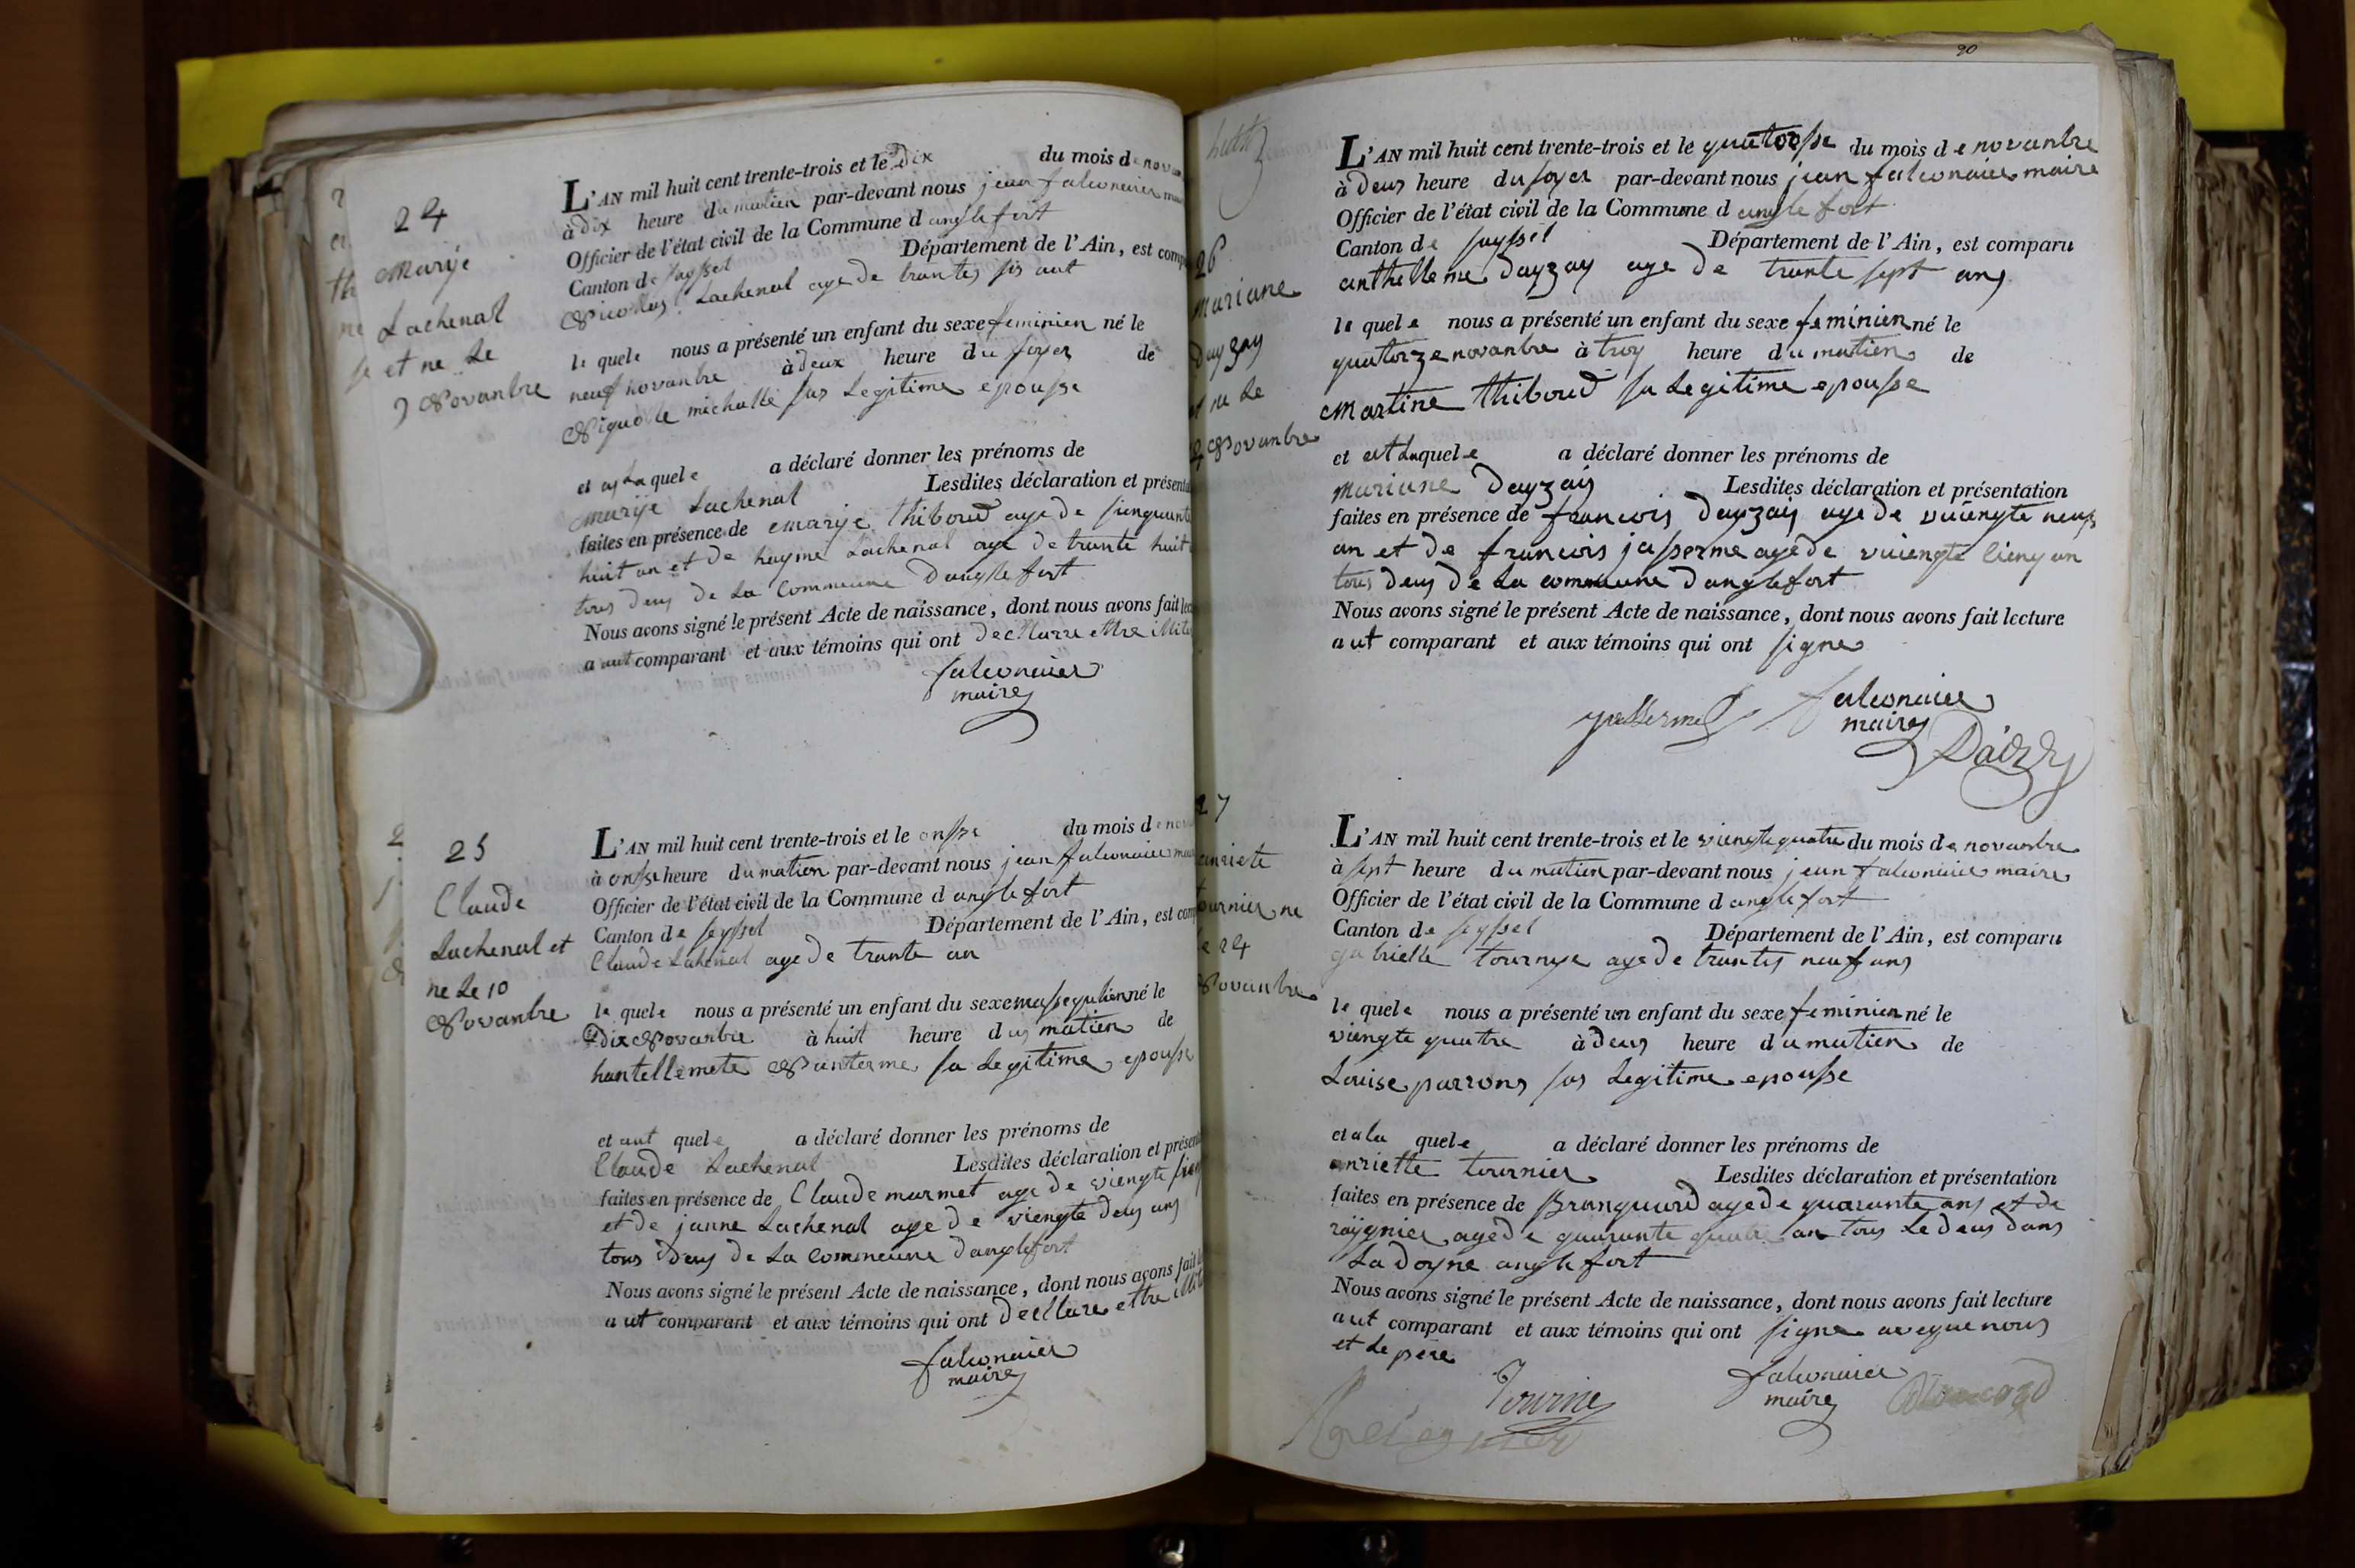 24
Marije
Lachenal
et ne Le
9 Novanbre
L'AN mil huit cent trente-trois et le Dix du mois de novan
à Dix heure du matien par-devant nous jean falconnier
Officier de l'état civil de la Commune d anglefort
Canton de Seyssel Département de l'Ain, est comp
Nicollas Lachenal age de trantes sis ant
le quele nous a présenté un enfant du sexe feminien né le
neuf novanbre à deux heure du soyer de
Niquolle michalle sas Legitime epousse
et as La quele a déclaré donner les prénoms de
Marije Lachenal Lesdites déclaration et présenta
faites en présence de marije Thiboud age de sinquante
huit an et de hayme Lachenal age de trante huit
tous deus de La Commeune Danglefort
Nous avons signé le présent Acte de naissance, dont nous avons fait lec
a aut comparant et aux témoins qui ont decllarre ettre illite
falconnier
maire
25
Claude
Lachenal et
ne Le 10
Novanbre
L'AN mil huit cent trente-trois et le onsse du mois de nov
à onsse heure du matien par-devant nous jean falconnier
Officier de l'état civil de la Commune d anglefort
Canton de Seyssel Département de l'Ain, est comp
Claude Lahenal age de trante an
le quele nous a présenté un enfant du sexe massequlien né le
Dix Novanbre à huit heure dus matien de
hantellemete Nanterme sa Legitime epousse
et aut quele a déclaré donner les prénoms de
Claude Lachenal Lesdites déclaration et présen
faites en présence de Claude marmet age de viengte
et de janne Lachenal age de viengte deus ans
tous Deus de La Commeune Danglefort
Nous avons signé le présent Acte de naissance, dont nous avons fait
a ut comparant et aux témoins qui ont decllare ettre illit
falconnier
maire
90
26
Mariane
Dayzay
et ne Le
Novanbre
L'AN mil huit cent trente-trois et le quatorsse du mois de novanbre
à Deus heure du soyer par-devant nous jean falconnier maire
Officier de l'état civil de la Commune d anglefort
Canton de Seyssel Département de l'Ain, est comparu
anthelleme Dayzay age De trante sept ans
le quele nous a présenté un enfant du sexe feminien né le
quatorze novanbre à troy heure du matien de
Martine Thiboud sa Legitime epousse
et aet La quele a déclaré donner les prénoms de
Mariane Dayzay Lesdites déclaration et présentation
faites en présence de francois Dayzay age de vuiengte neuf
an et de francois jasserme age de vuiengte sienq an
tous deus de La commeune Danglefort
Nous avons signé le présent Acte de naissance, dont nous avons fait lecture
a ut comparant et aux témoins qui ont signe
falconnier
maire
27
anriete
tournier ne
le 24
Novanbre
L'AN mil huit cent trente-trois et le viengte quatre du mois de novanbre
à sept heure du matien par-devant nous jean falconnier maire
Officier de l'état civil de la Commune d anglefort
Canton de Seyssel Département de l'Ain, est comparu
gabrielle tournye age de trantes neuf ans
le quele nous a présenté un enfant du sexe feminien né le
viengte quatre à Deus heure du matien de
Louise parrons sas Legitime epousse
et a la quele a déclaré donner les prénoms de
anriette tournier Lesdites déclaration et présentation
faites en présence de Branquard age de quarante ans et de
raygnier age de quarante quatre an tous Le deus Dans
La Doyne anglefort
Nous avons signé le présent Acte de naissance, dont nous avons fait lecture
a ut comparant et aux témoins qui ont signe aveque nous
et Le pere
Tournie
falconnier
maire